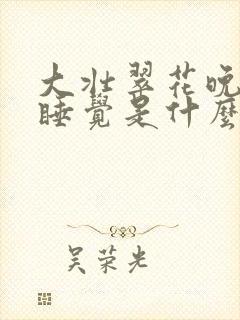 大壯翠花晚
睡覺是什麼
吴荣光